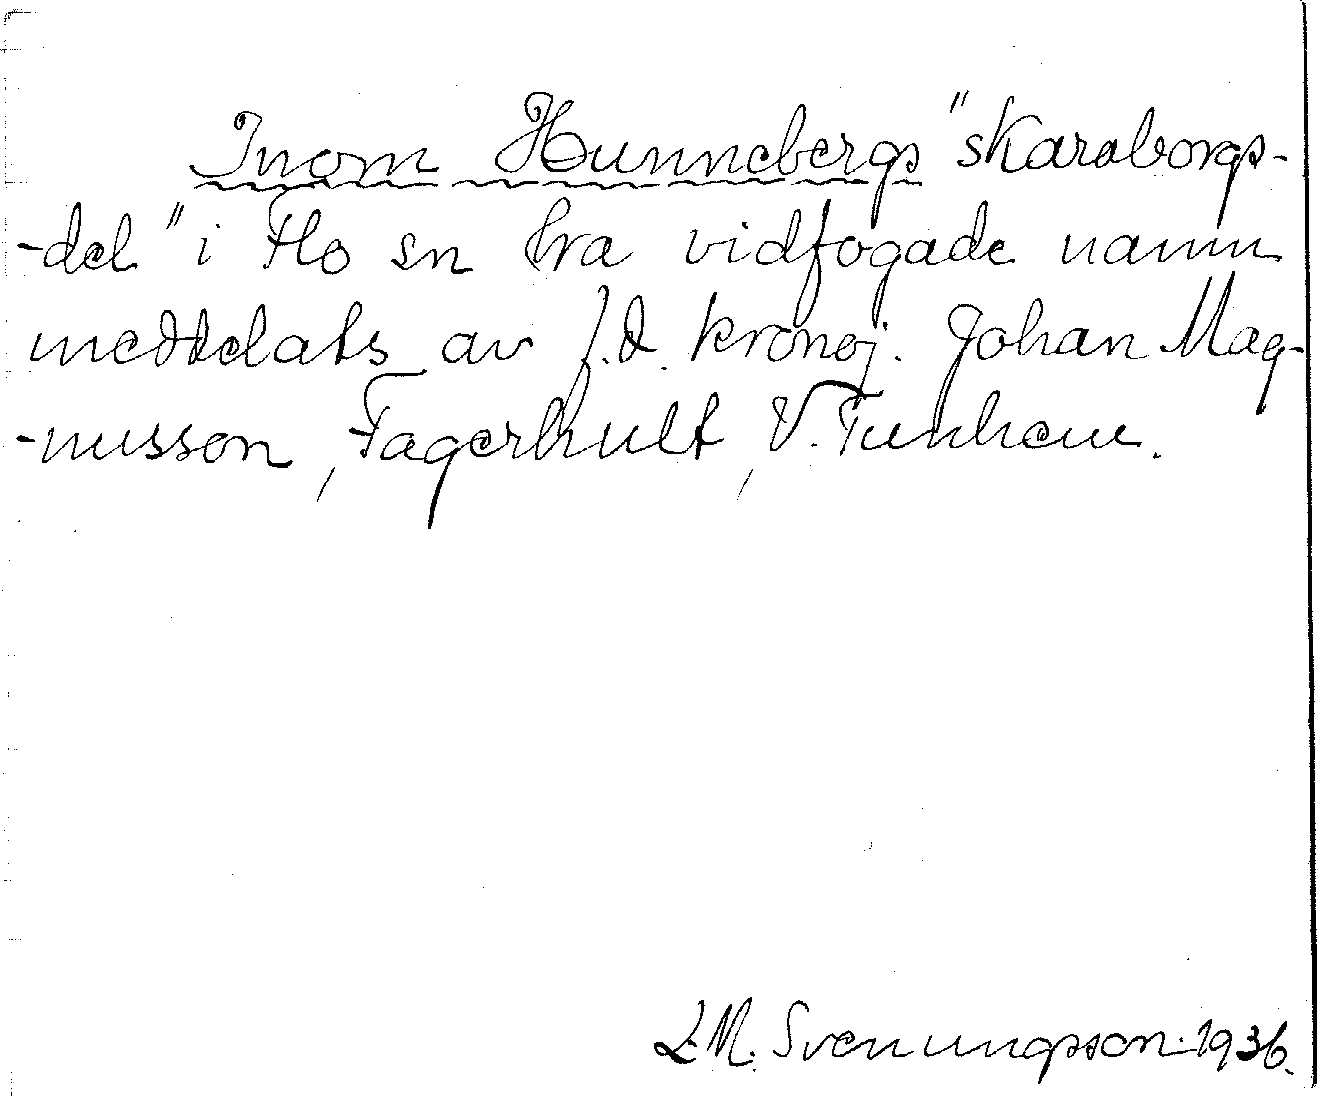 Inom Hunnebergs "skaraborgs-
-del" i Flo sn bra vidfogade namn
meddelats av f.d. kronoj. Johan Mag-
-nusson, Fagerhult, V. Tunhem.
L.M. Svenungsson. 1936.